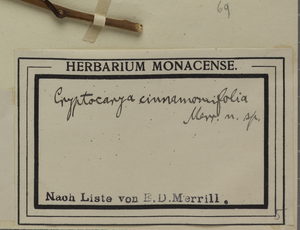 69
HERBARIUM MONACENSE.
Cryptocarya cinnamomifolia
Merr. n. sp.
Nach Liste von E.D.Merrill.